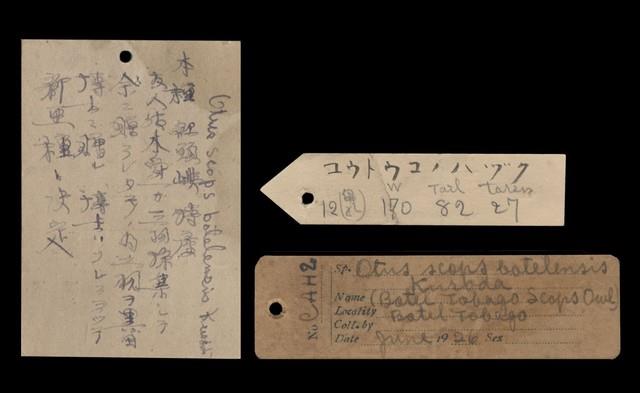 Otus scops botelensis Kuroda
本種 紅頭嶼 特産
友人 カ 三羽採集シテ
余ニ贈ラレタモノ内 一羽ヲ黒田
博士ニ贈レ 博士ハ
新亜種ト決定ス
コウトウコノハヅク
W Tail Tarsus
12 170 82 27
No. CAH2
Sp. Otus scops botelensis
Kuroda
Name (Botel Tobago Scops Owl)
Locality Botel Tobago
Coll. by
Date June 1926 Sex